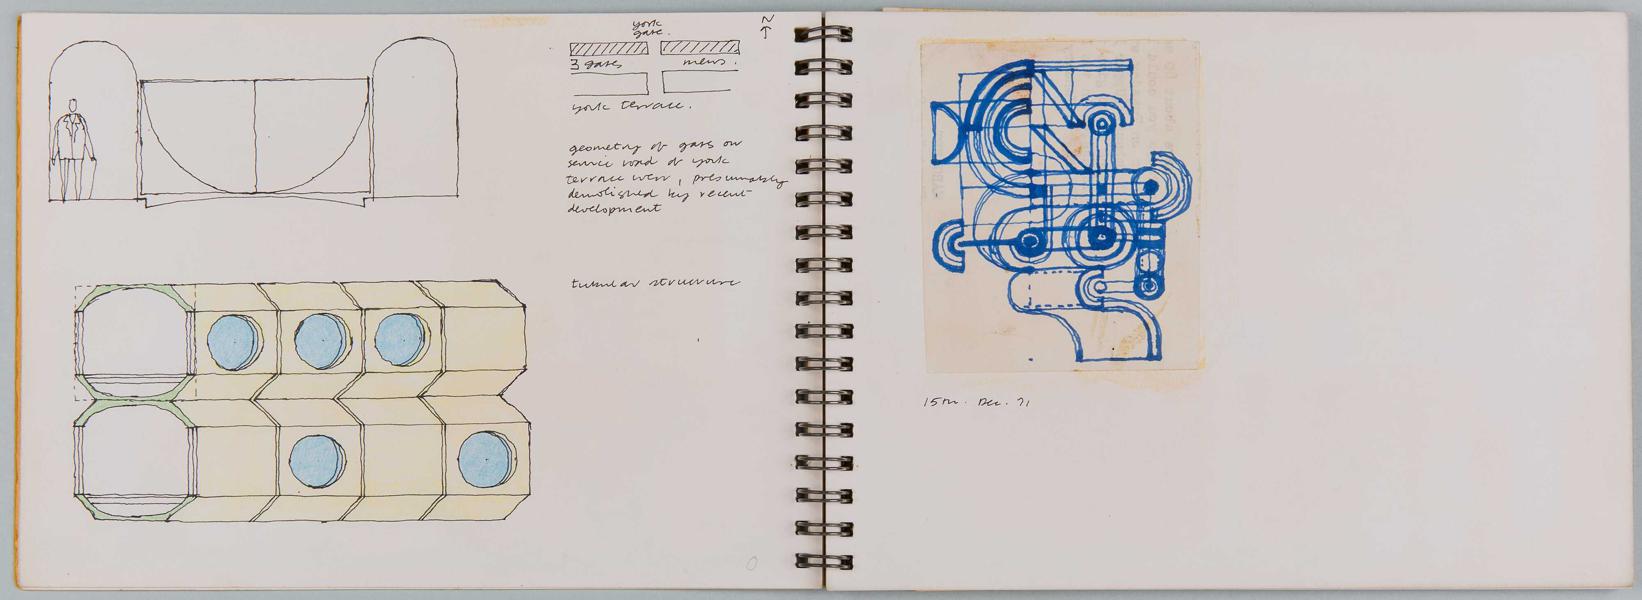 york
gate.
N
3 gates
mews.
york terrace.
geometry of gates on
service road of york
terrace west, presumably
demolished by recent
development
tubular structure
15th. Dec. 71